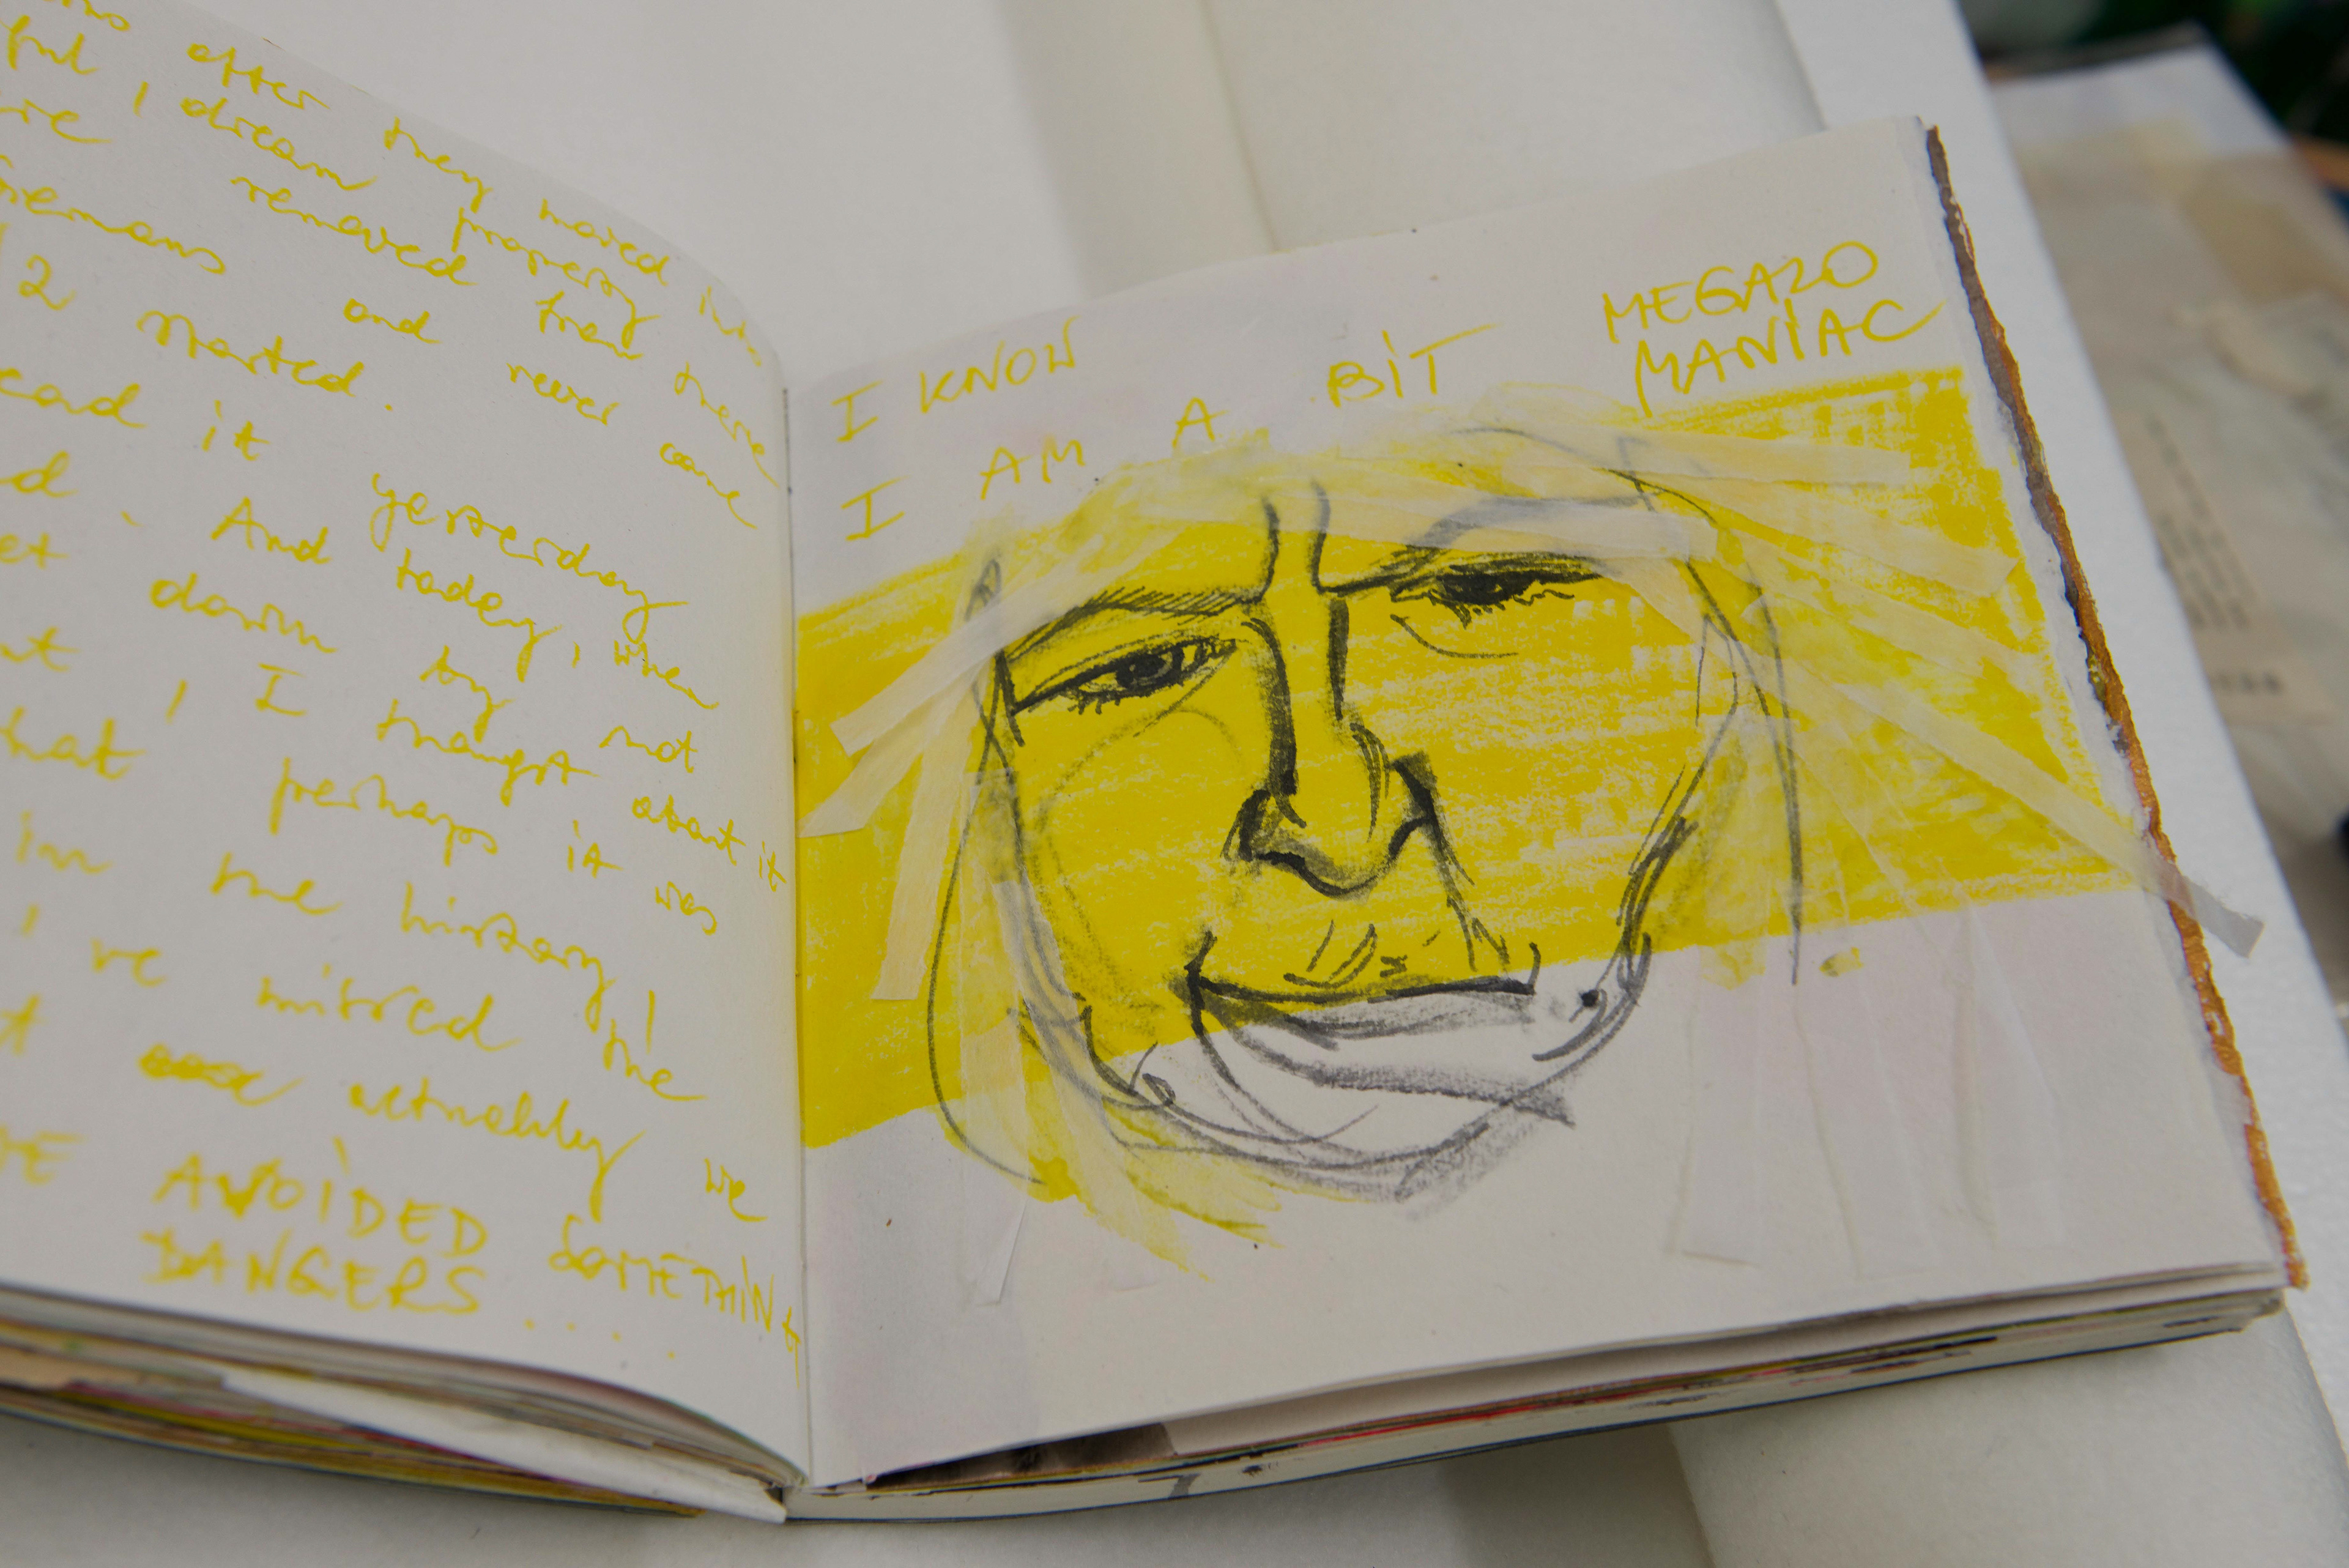 after they moved into
, dream property
removed from there
and never came
12 started.
it yesterday
. And today, when
down by not
, I thought about it
perhaps it was
in the history,
I've the
actually we
AVOIDED SOMETHING
DANGERS ....
I KNOW
I AM A BIT MEGALO
MANIAC